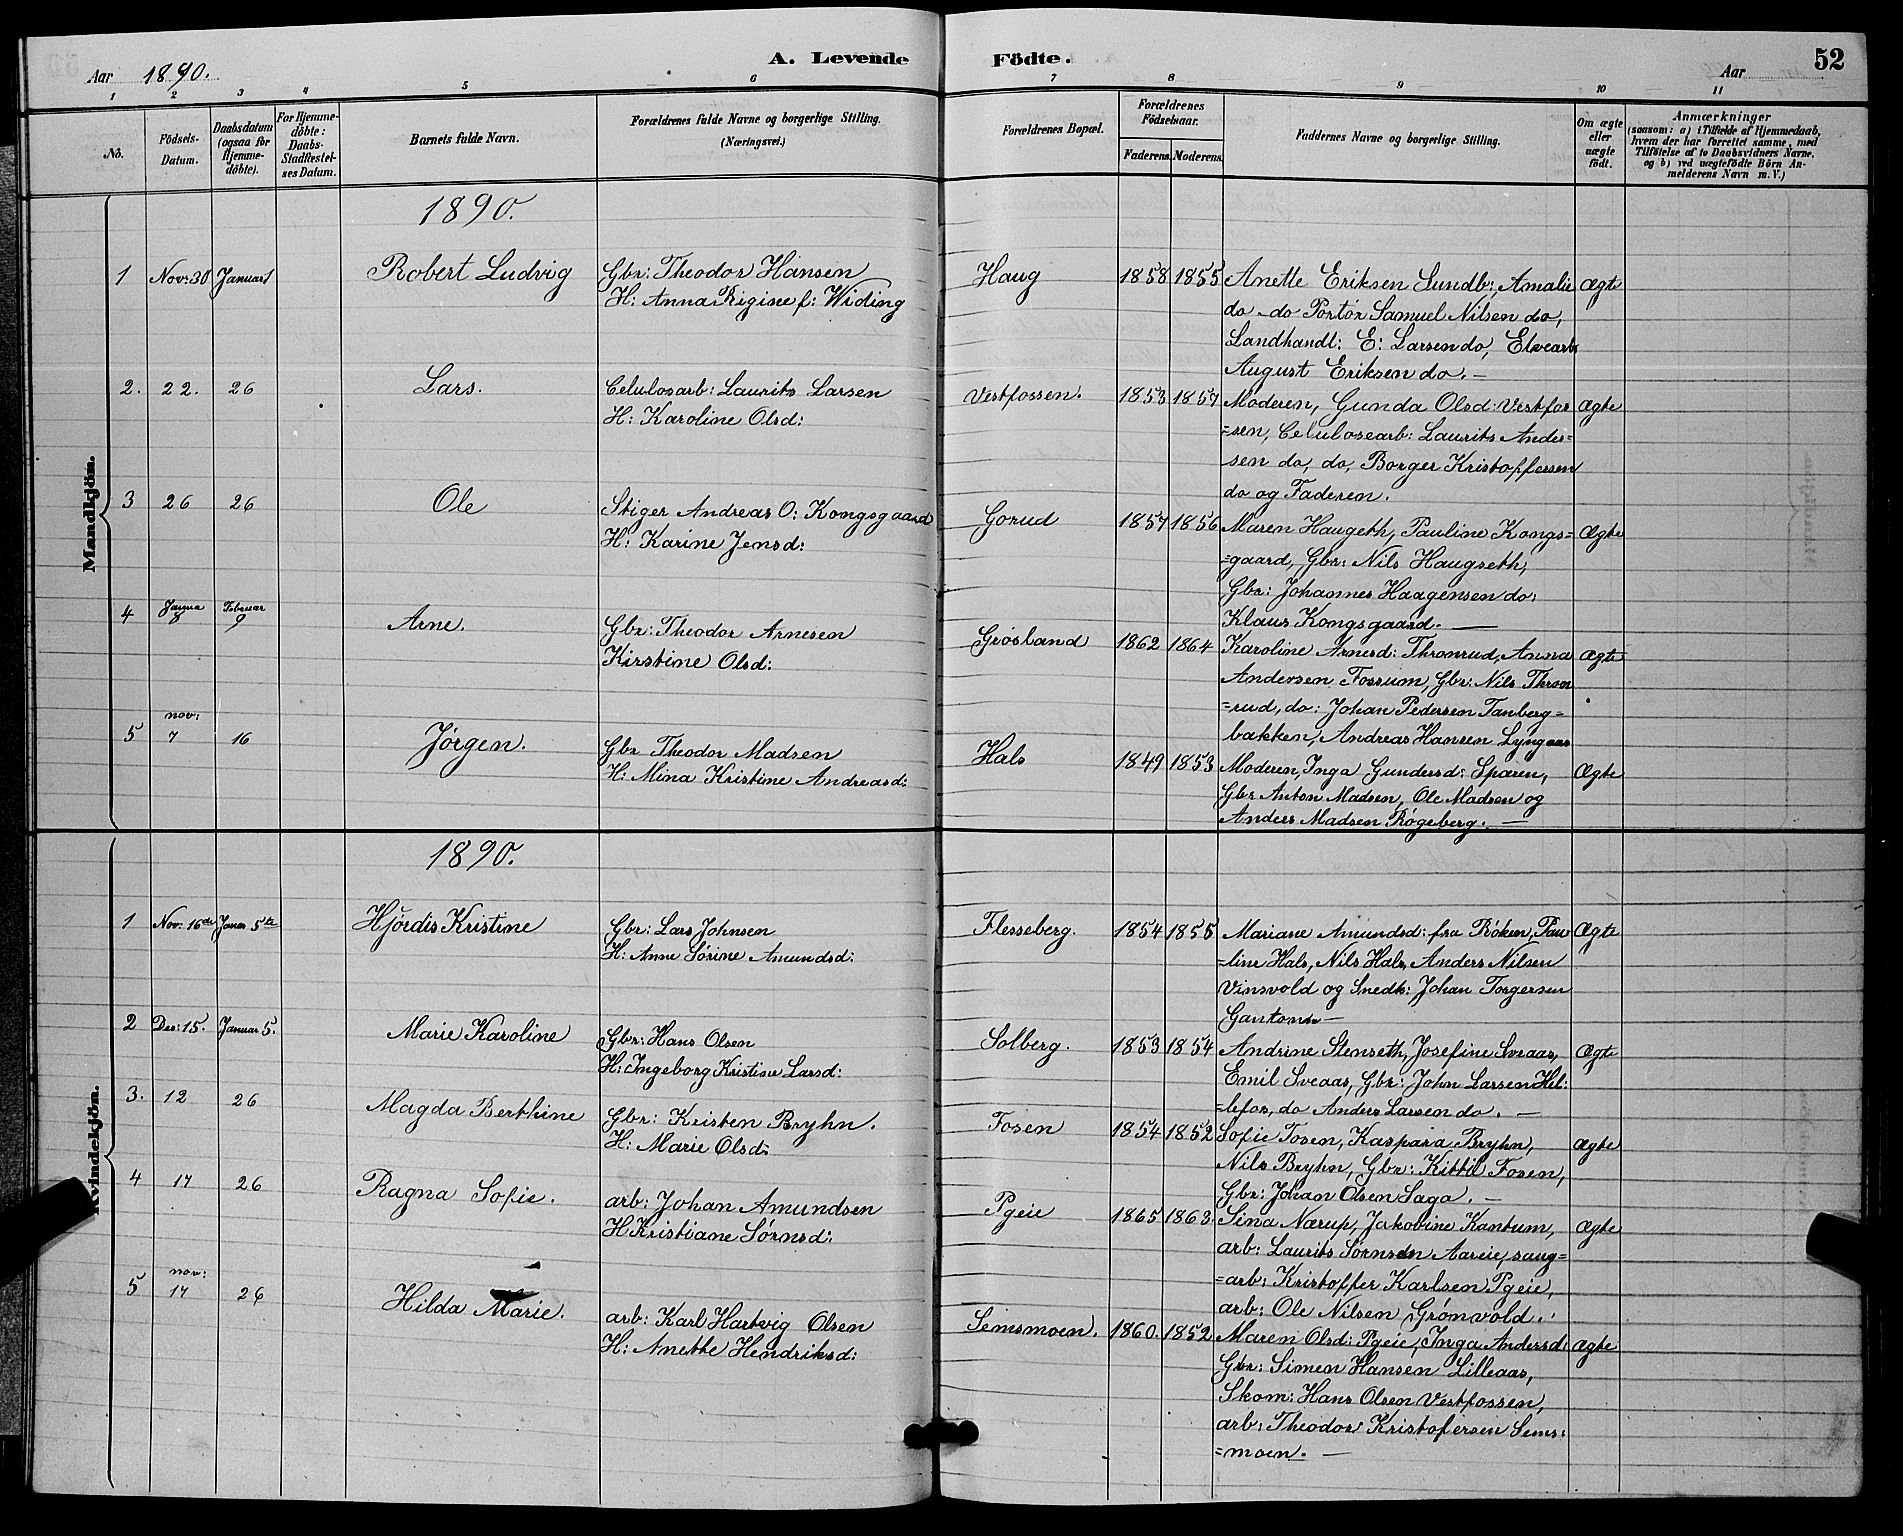 Aar 1890. A. Levende Födte. Aar 52
1 2 3 4 5 6 7 8 9 10 11
No. Födsels-Datum. Daabsdatum (ogsaa for Hjemmedöbte). For Hjemmedöbte: Daabs-Stadfæstelses Datum. Barnets fulde Navn. Forældrenes fulde Navne og borgerlige Stilling. (Næringsvei.) Forældrenes Bopæl. Forældrenes Födselsaar. Faderens. Moderens. Faddernes Navne og borgerlige Stilling. Om ægte eller uægte födt. Anmærkninger (saasom: a) i Tilfælde af Hjemmedaab, hvem der har forrettet samme, med Tilföielse af to Daabsvidners Navne, og b) ved uægtefödte Börn Anmelderens Navn m. V.)
Mandkjön.
1890.
1 Nov: 30 Januar 1 Robert Ludvig Gbr: Theodor Hansen Haug 1858 1855 Anette Eriksen Sundb:, Amalie Ægte
H: Anna Rigine f: Widing do do Portör Samuel Nilsen do,
Landhandl: E: Larsen do, Elvearb
August Eriksen do. —
2. 22. 26 Lars. Celulosarb: Laurits Larsen Vestfossen. 1853 1857 Moderen, Gunda Olsd: Vestfos Ægte
H: Karoline Olsd: =sen, Celulosearb: Laurits Ander=
sen do, do, Borger Kristoffersen
do og Faderen.
3 26 26 Ole Stiger Andreas O: Kongsgaard Gorud 1857 1856 Maren Haugeth, Pauline Kongs= Ægte
H: Karine Jensd: =gaard, Gbr: Nils Haugseth,
Gbr: Johannes Haagensen do,
Klaus Kongsgaard. —
4 Janua 8 Februar 9 Arne. Gbr: Theodor Arnesen Grøsland 1862 1864 Karoline Arnesd: Thronrud, Anna Ægte
Kirstine Olsd: Andersen Fossum, Gbr: Nils Thron
=rud, do: Johan Pedersen Tanberg=
bakken, Andreas Hansen Lyngaas
5 nov: 7 16 Jørgen. Gbr Theodor Madsen Hals 1849 1853 Moderen, Inga Gundersd: Sparen, Ægte
H: Mina Kristine Andreasd: Gbr Anton Madsen, Ole Madsen og
Anders Madsen Røgeberg. —
Kvindekjön.
1890.
1 Nov: 16de Januar 5te Hjørdis Kristine Gbr: Lars Johnsen Flesseberg. 1854 1855 Mariane Amundsd: fra Røken, Pau Ægte
H: Anne Sørine Amundsd: =line Hals, Nils Hals, Anders Nilsen
Vinsvold og Snedk: Johan Torgersen
2 Des: 15. Januar 5. Marie Karoline Gbr: Hans Olsen Solberg. 1853 1854 Andrine Stenseth, Josefine Sveaas, Ægte
H: Ingeborg Kristine Larsd: Emil Sveaas, Gbr: John Larsen Hel:
=lefos, do Anders Larsen do. —
3. 12 26 Magda Berthine Gbr: Kristen Bryhn. Fosen 1854 1852 Sofie Fosen, Kaspara Bryhn, Ægte
H: Marie Olsd: Nils Bryhn, Gbr: Kittil Fosen,
Gbr: Johan Olsen Saga. —
4 17 26 Ragna Sofie. arb: Johan Amundsen Pgeie 1865 1863. Sina Nærup, Jakobine Kantum, Ægte
H Kristiane Sørnsd: arb: Laurits Sørnsen Aareie, saug=
=arb: Kristoffer Karlsen Pgeie,
arb: Ole Nilsen Grønvold.
5 nov: 17 26 Hilda Marie. arb: Karl Hartvig Olsen Semsmoen. 1860. 1852 Maren Olsd: Pgeie, Inga Andersd: Ægte
H: Anette Hendriksd: Gbr: Simen Hansen Lilleaas,
Skom: Hans Olsen Vestfossen,
arb: Theodor Kristofersen Sems:
=moen. —